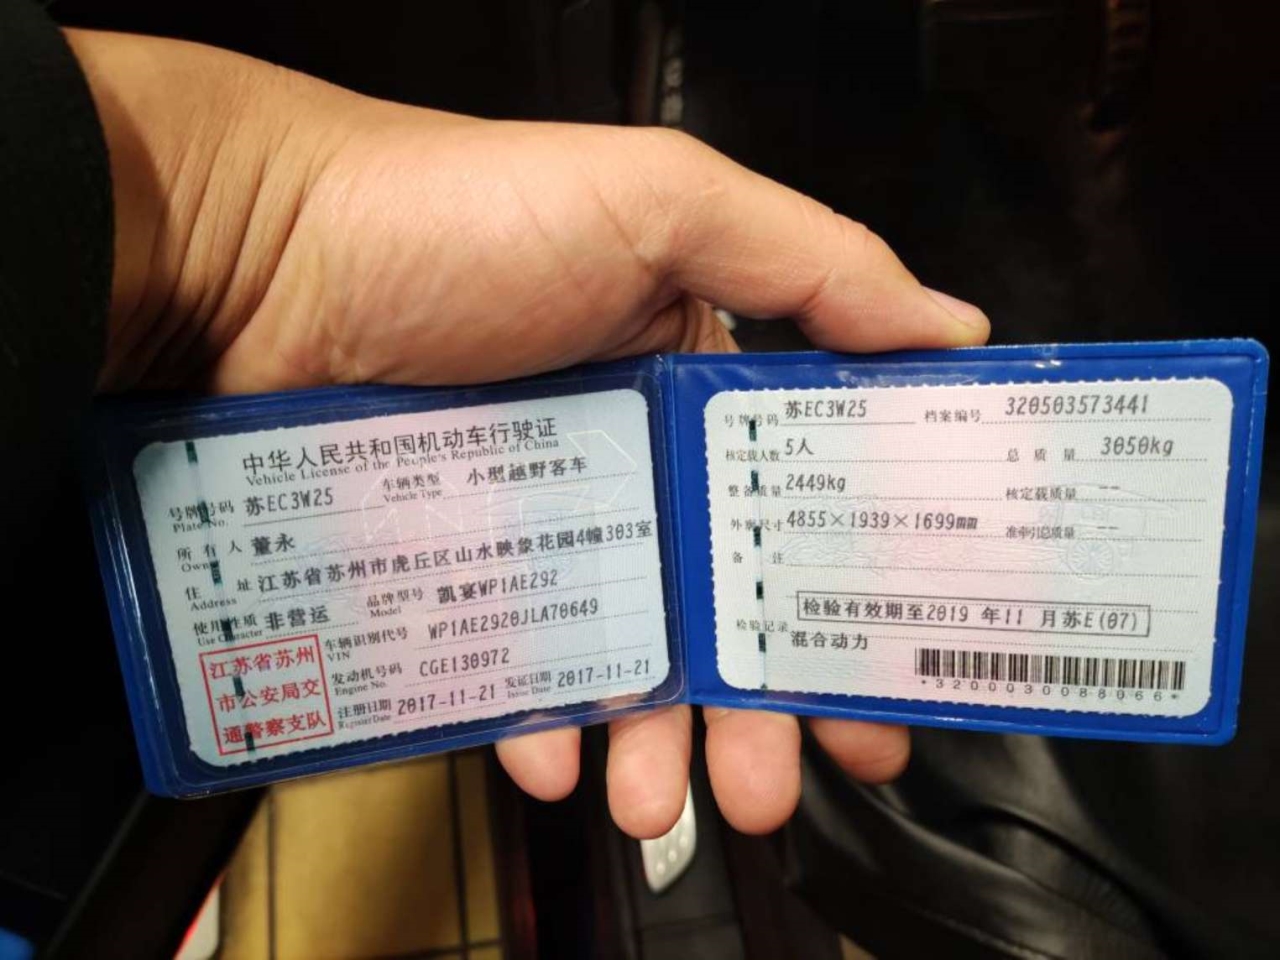 中华人民共和国机动车行驶证
Vehicle License of the People's Republic of China
号牌号码 苏EC3W25 车辆类型 小型越野客车
Plate No. Vehicle Type
所有人 董永
Owner
住址 江苏省苏州市虎丘区山水映象花园4幢303室
Address
使用性质 非营运 品牌型号 凯宴WP1AE292
Use Character Model
江苏省苏州
市公安局交
通警察支队
车辆识别代号 WP1AE2920JLA70649
VIN
发动机号码 CGE130972
Engine No.
注册日期 2017-11-21 发证日期 2017-11-21
Register Date Issue Date
号牌号码 苏EC3W25 档案编号 320503573441
核定载人数 5人 总质量 3050kg
整备质量 2449kg 核定载质量 --
外廓尺寸 4855×1939×1699mm 准牵引总质量 --
备注
检验记录 检验有效期至2019年11月苏E(07)
混合动力
*3200030088066*